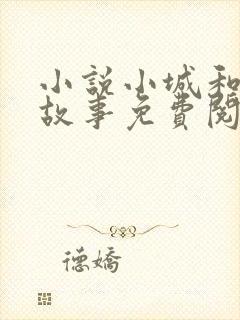 小說小城和
故事免費閱
德嬌